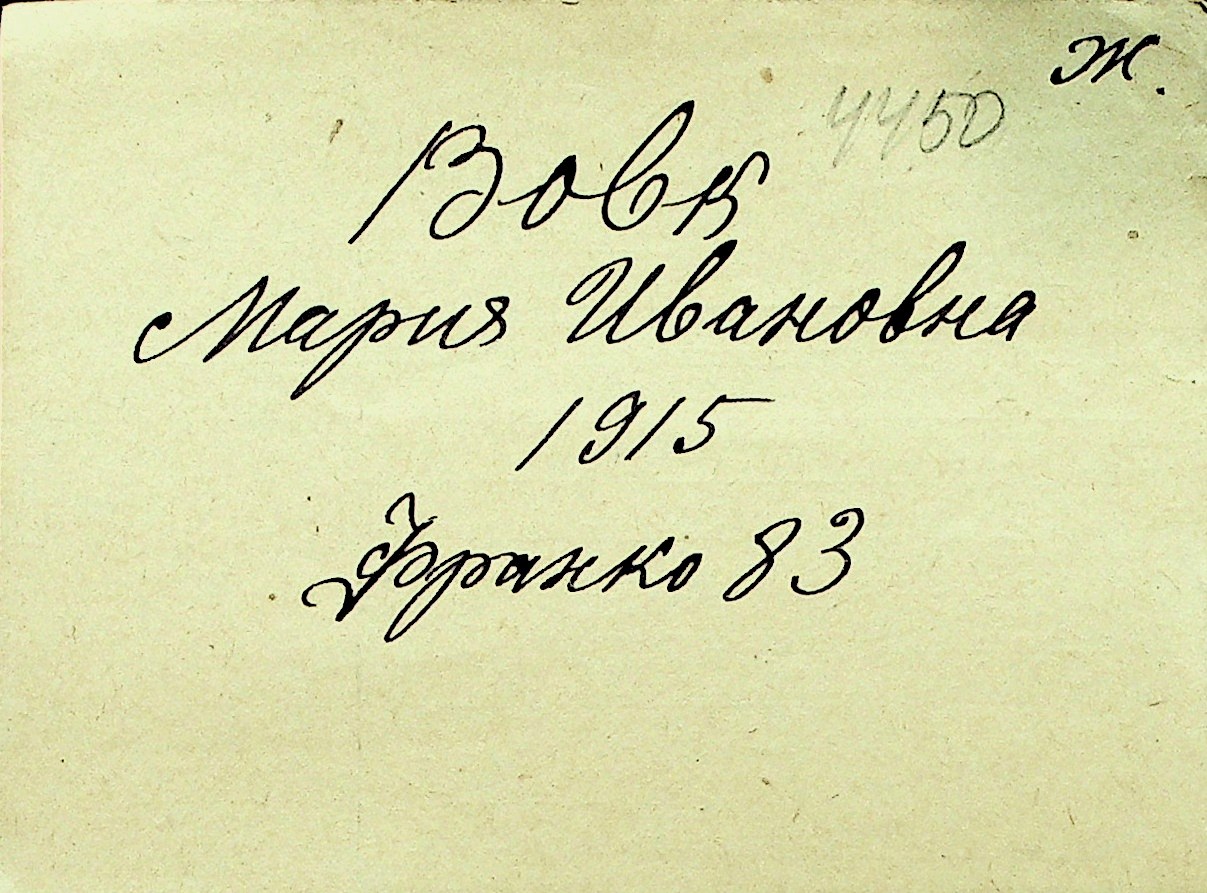 ж.
4450
Вовк
Мария Ивановна
1915
Франко 83